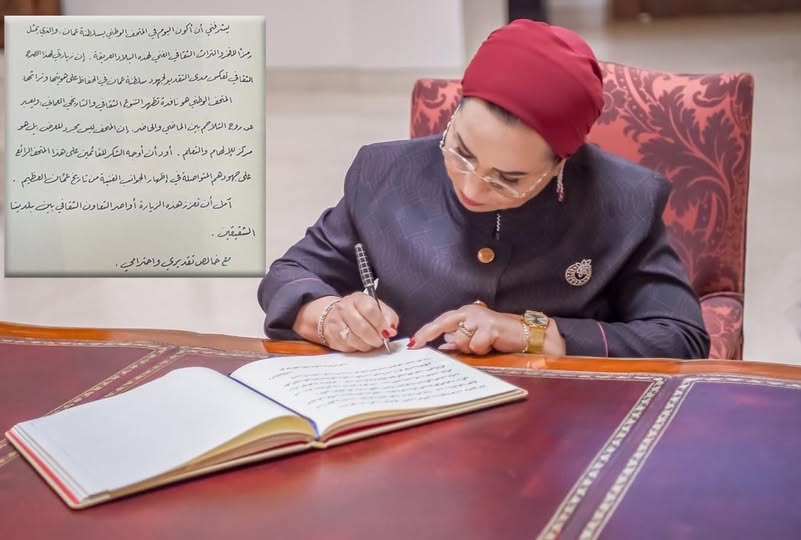 يشرفني أن أكون اليوم في المتحف الوطني بسلطنة عمان، والذي يمثل
رمزًا للفخر والتراث الثقافي الغني لهذه البلاد العريقة. إن زيارتي لهذا الصرح
الثقافي تعكس مدى التقدير لجهود سلطنة عمان في الحفاظ على هويتها وتراثها.
المتحف الوطني هو نافذة تظهر التنوع الثقافي والتاريخي العماني، ويعبر
عن روح التلاحم بين الماضي والحاضر. إن المتحف ليس مجرد للعرض بل هو
مركز للإلهام والتعلم. أود أن أوجه الشكر للقائمين على هذا المتحف الرائع
على جهودهم المتواصلة في إظهار الجوانب الغنية من تاريخ عمان العظيم.
آمل أن تعزز هذه الزيارة أواصر التعاون الثقافي بين بلدينا
الشقيقين.
مع خالص تقديري واحترامي.